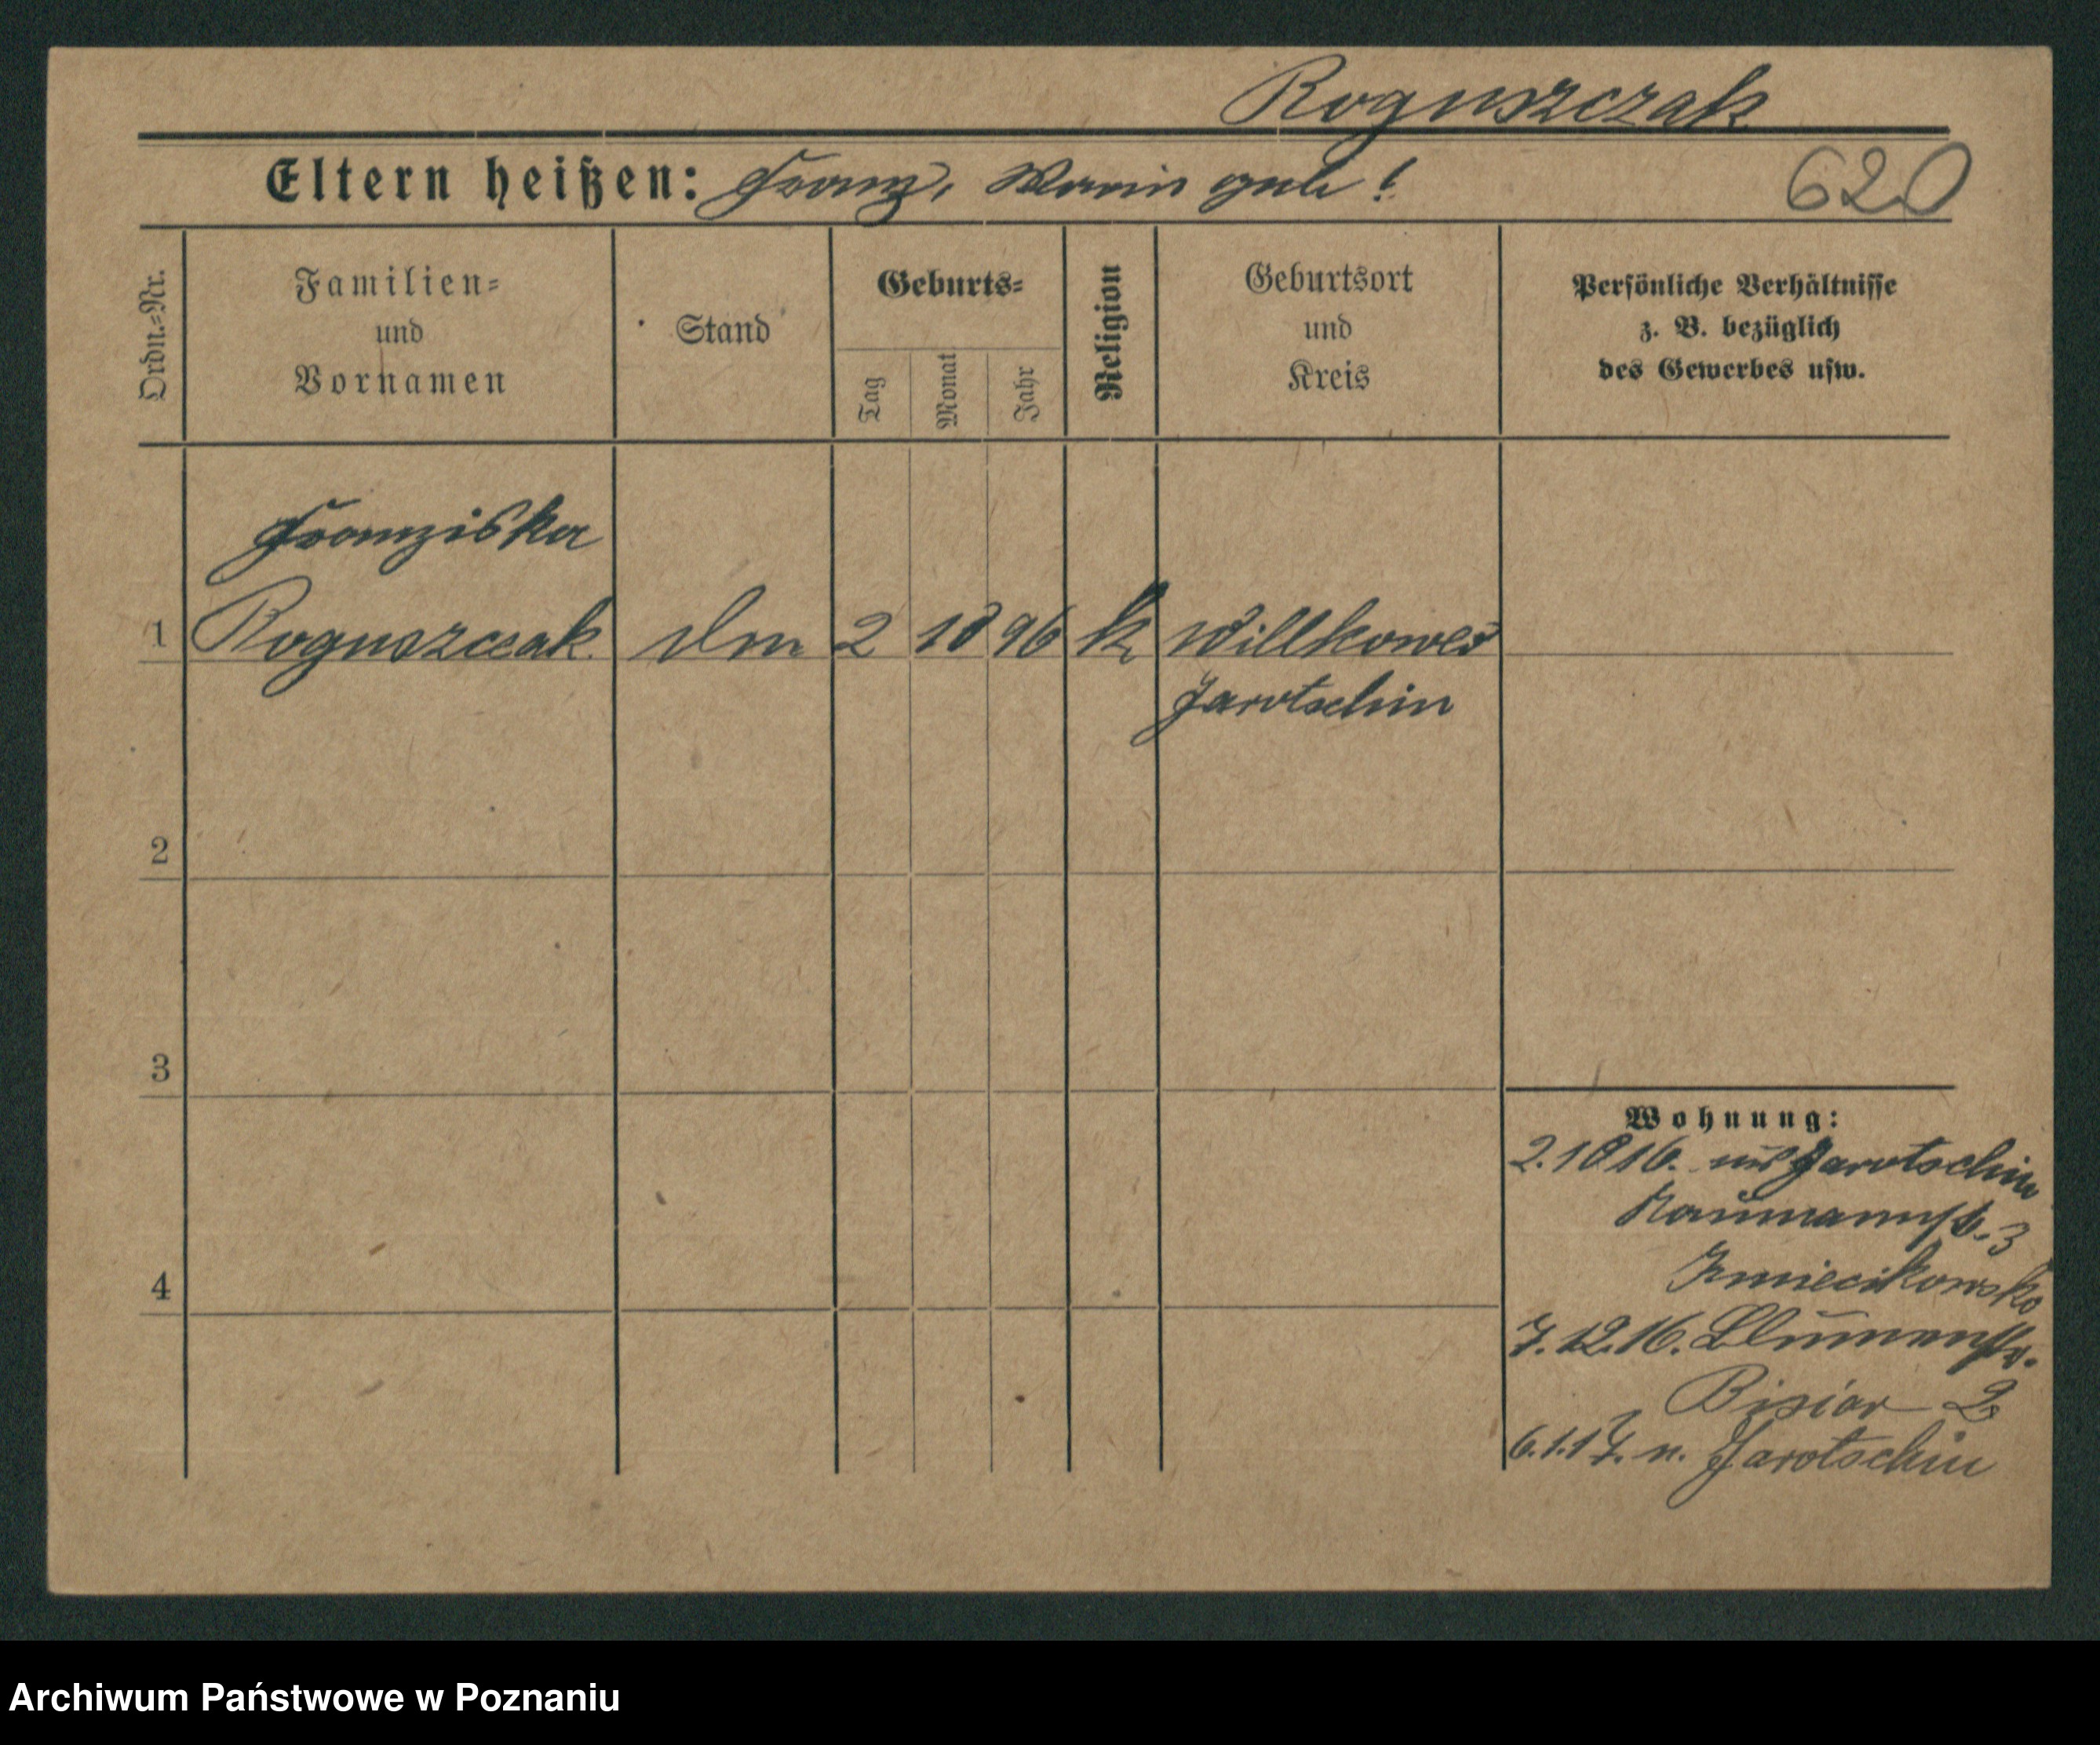 Roguszczak
Eltern heißen: Franz, Marie geb. !
620
Ordn.=Nr.
Familien=
und
Vornamen
Stand
Geburts=
Tag
Monat
Jahr
Religion
Geburtsort
und
Kreis
Persönliche Verhältnisse
z. B. bezüglich
des Gewerbes usw.
Franziska
1 Roguszczak 2 10 96 k
Jarotschin
2
3
4
Wohnung:
2.10 16. Jarotschin
Naumannstr. 3
7.12.16. Blumenstr.
2
6.1.17. n. Jarotschin
Archiwum Państwowe w Poznaniu